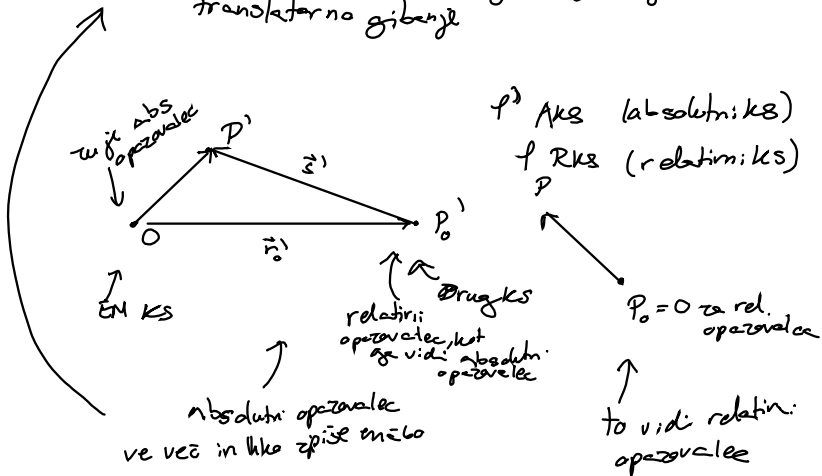 translatorno gibanje
tu je abs
opazovalec
P'
s'
O
r₀'
P₀'
En KS
Drug ks
relativni
opazovalec, kot
ga vidi absolutni
opazovalec
absolutni opazovalec
ve več in lhko zpiše enačbo
φ' AKS (absolutni ks)
φ RKS (relativni ks)
P
P₀ = O za rel.
opazovalca
to vidi relativni
opazovalec